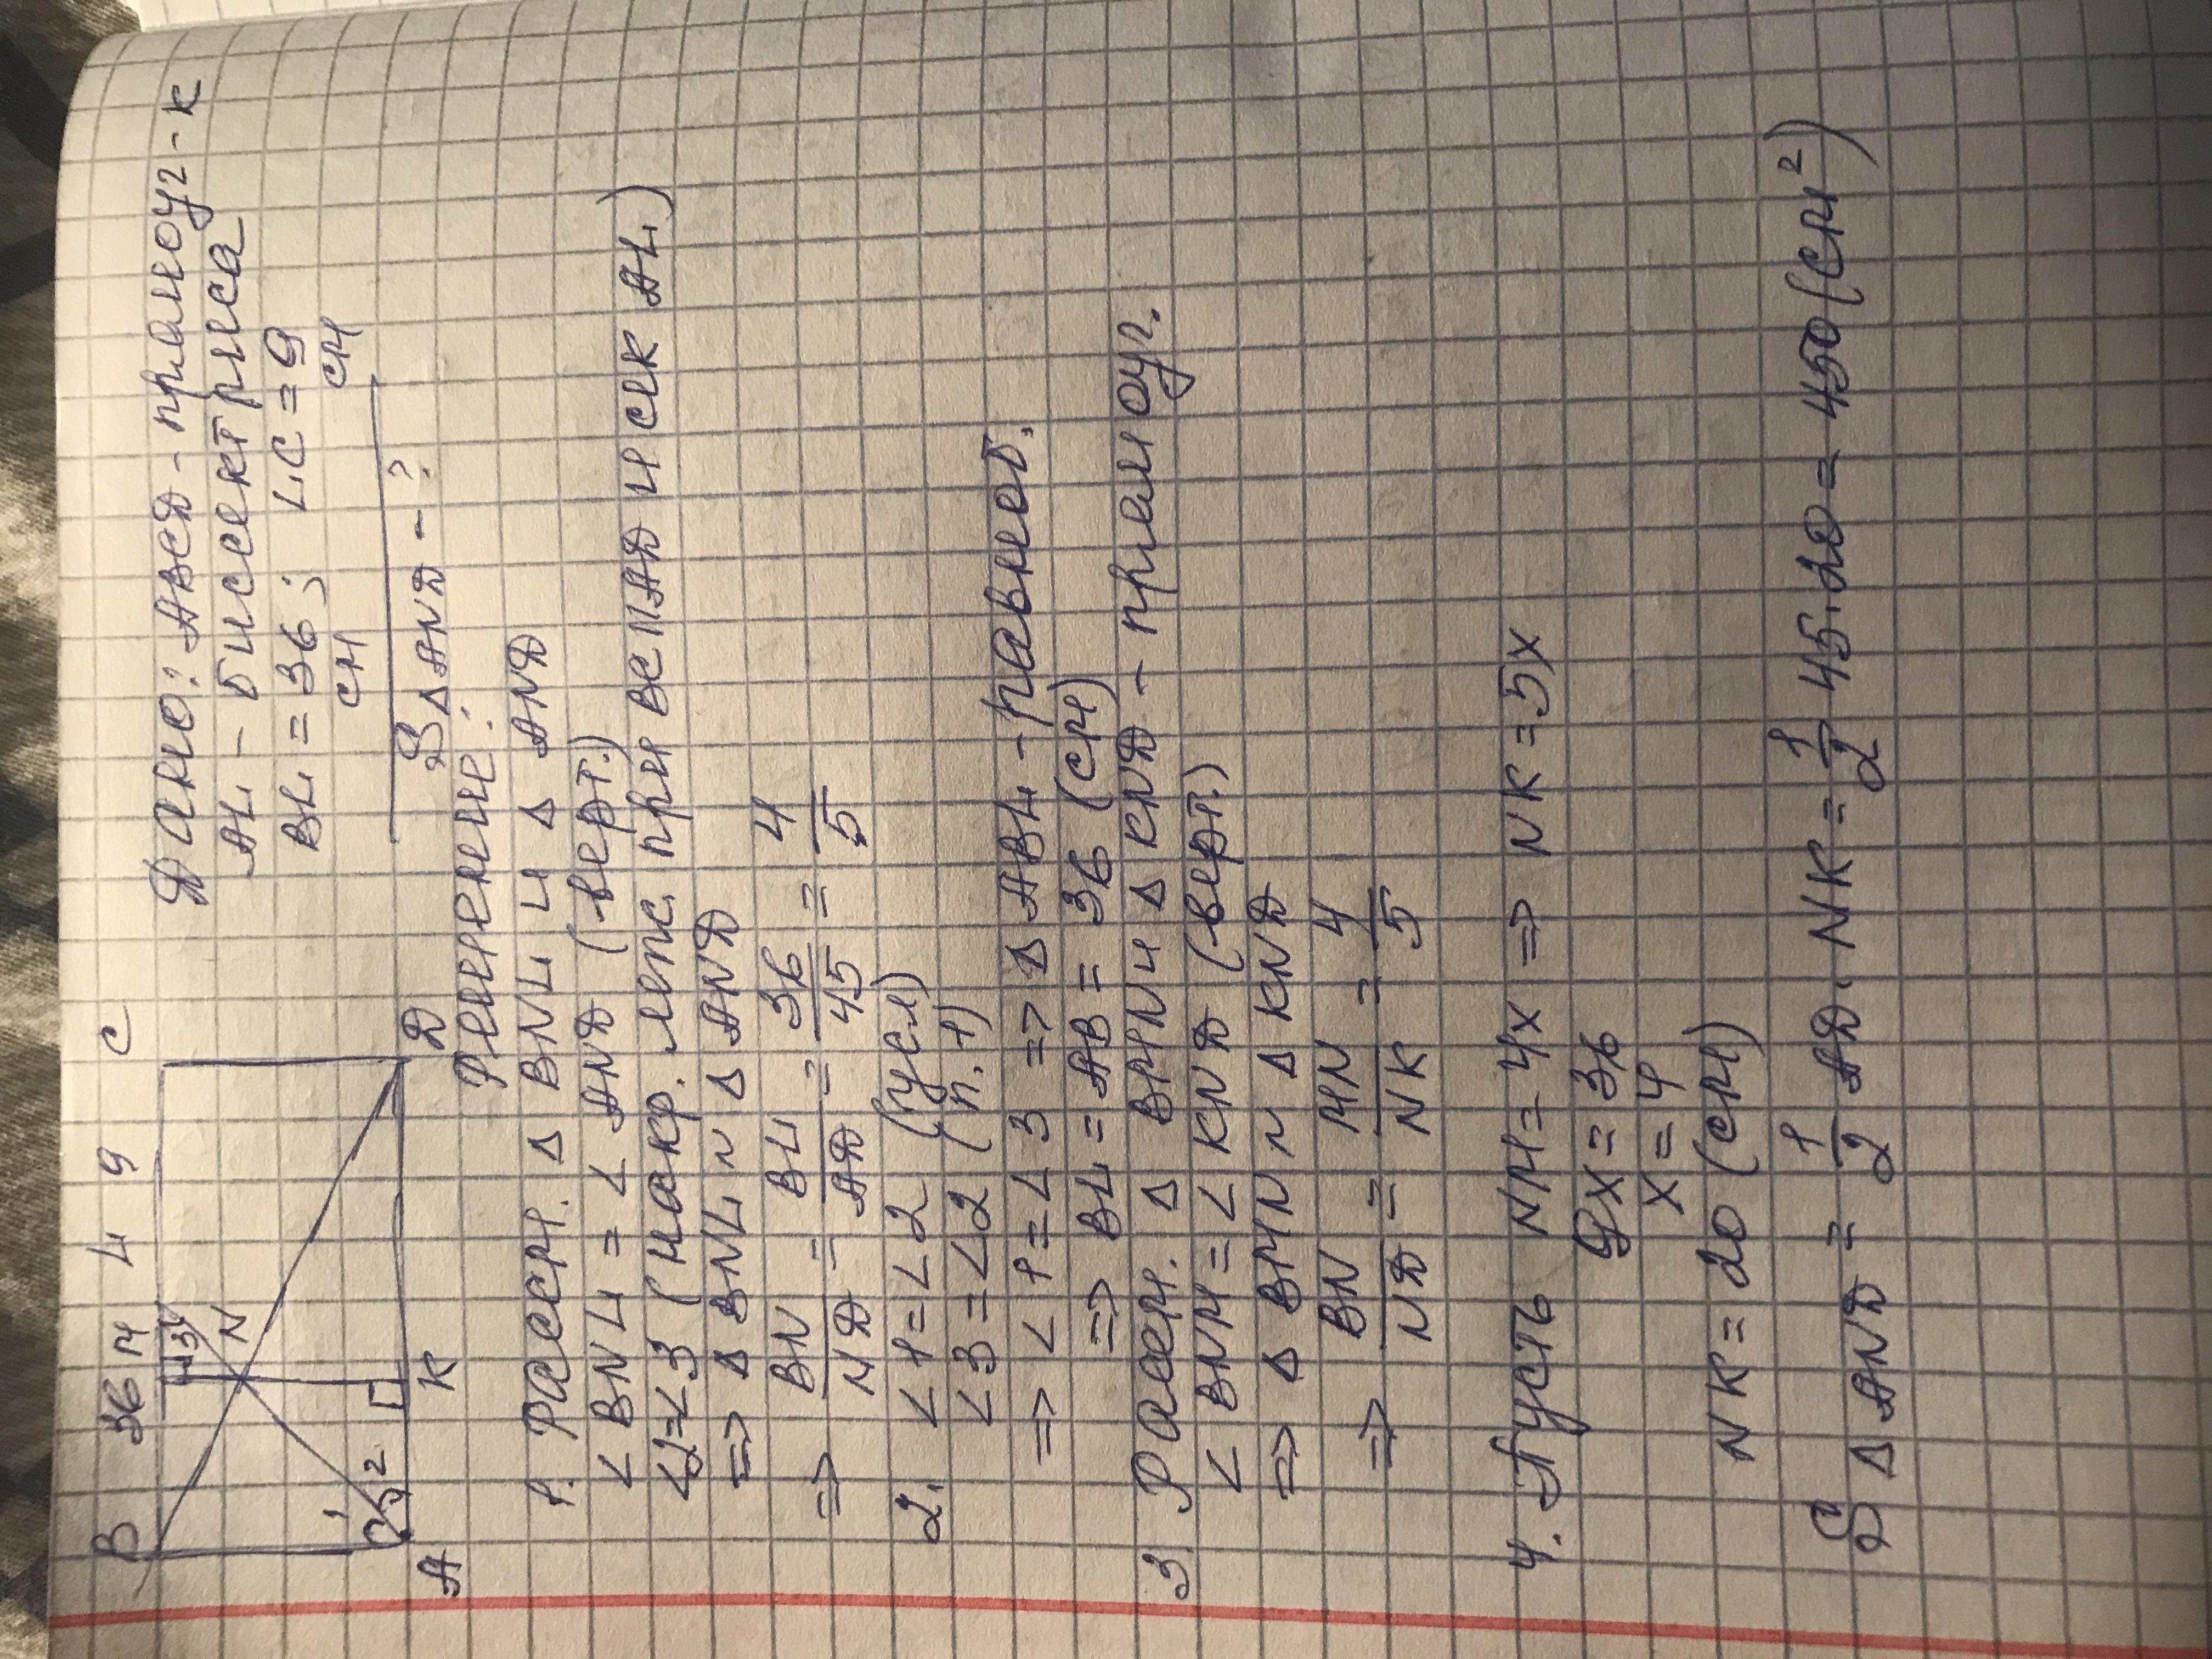 В 36 М L 9 С
3 4
N
1
2
А К Д
Дано: АВСД - прямоуг-к
AL - биссектриса
BL = 36 ; LC = 9
см см
S △ AND - ?
Решение:
1. Рассм. △ BNL и △ AND
∠ BNL = ∠ AND (верт.)
∠2=∠3 (накр. леж. при BC ∥ АД и сек AL)
=> △ BNL ~ △ AND
=> BN/NД = BL/АД = 36/45 = 4/5
2. ∠1 = ∠2 (усл)
∠3 = ∠2 (п. 1)
=> ∠1 = ∠3 => △ ABL - равноб.
=> BL = AB = 36 (см)
3. Рассм. △ BMN и △ KND - прямоуг.
∠ BNM = ∠ KND (верт.)
=> △ BMN ~ △ KND
=> BN/NД = MN/NK = 4/5
4. Пусть NM = 4x => NK = 5x
9x = 36
x = 4
NK = 20 (см)
S △ AND = 1/2 АД · NK = 1/2 45 · 20 = 450 (см²)